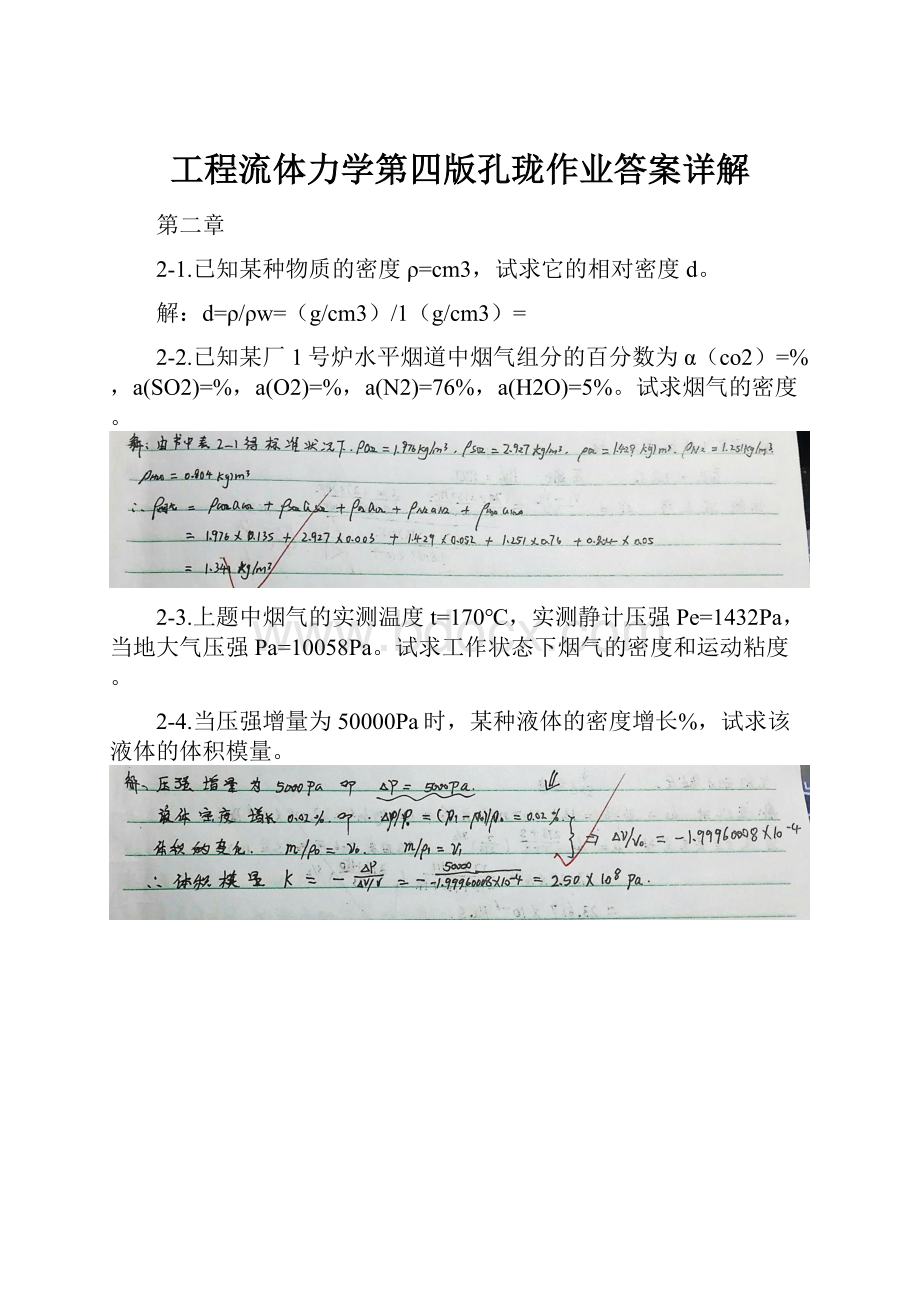 工程流体力学第四版孔珑作业答案详解
第二章
2-1.已知某种物质的密度ρ=cm3，试求它的相对密度d。
解：d=ρ/ρw=（g/cm3）/1（g/cm3）=
2-2.已知某厂1号炉水平烟道中烟气组分的百分数为α（co2）=%
，a(SO2)=%，a(O2)=%，a(N2)=76%，a(H2O)=5%。试求烟气的密度
。
解：由书中表2-1得标准状况下，ρco2=1.976kg/m³，ρso2=2.927kg/m³，ρo2=1.429kg/m³，ρN2=1.251kg/m³
ρH2O=0.804kg/m³
= 1.976×0.135 + 2.927×0.003 + 1.429×0.052 + 1.251×0.76 + 0.804×0.05
= 1.341 kg/m³
2-3.上题中烟气的实测温度t=170℃，实测静计压强Pe=1432Pa，
当地大气压强Pa=10058Pa。试求工作状态下烟气的密度和运动粘度
。
www.bdocx.com
2-4.当压强增量为50000Pa时，某种液体的密度增长%，试求该
液体的体积模量。
解、压强增量为 5000Pa 即 ΔP=5000Pa.
液体密度增长0.02%即 Δρ/ρ0=(ρ1-ρ0)/ρ0=0.02%
⇒ ΔV/V0=-1.99960008×10-4
体积的变化 m/ρ0=V0 m/ρ1=V1
∴体积模量 K = -ΔP/(ΔV/V) = -50000/(-1.99960008×10-4) = 2.50×108 Pa.